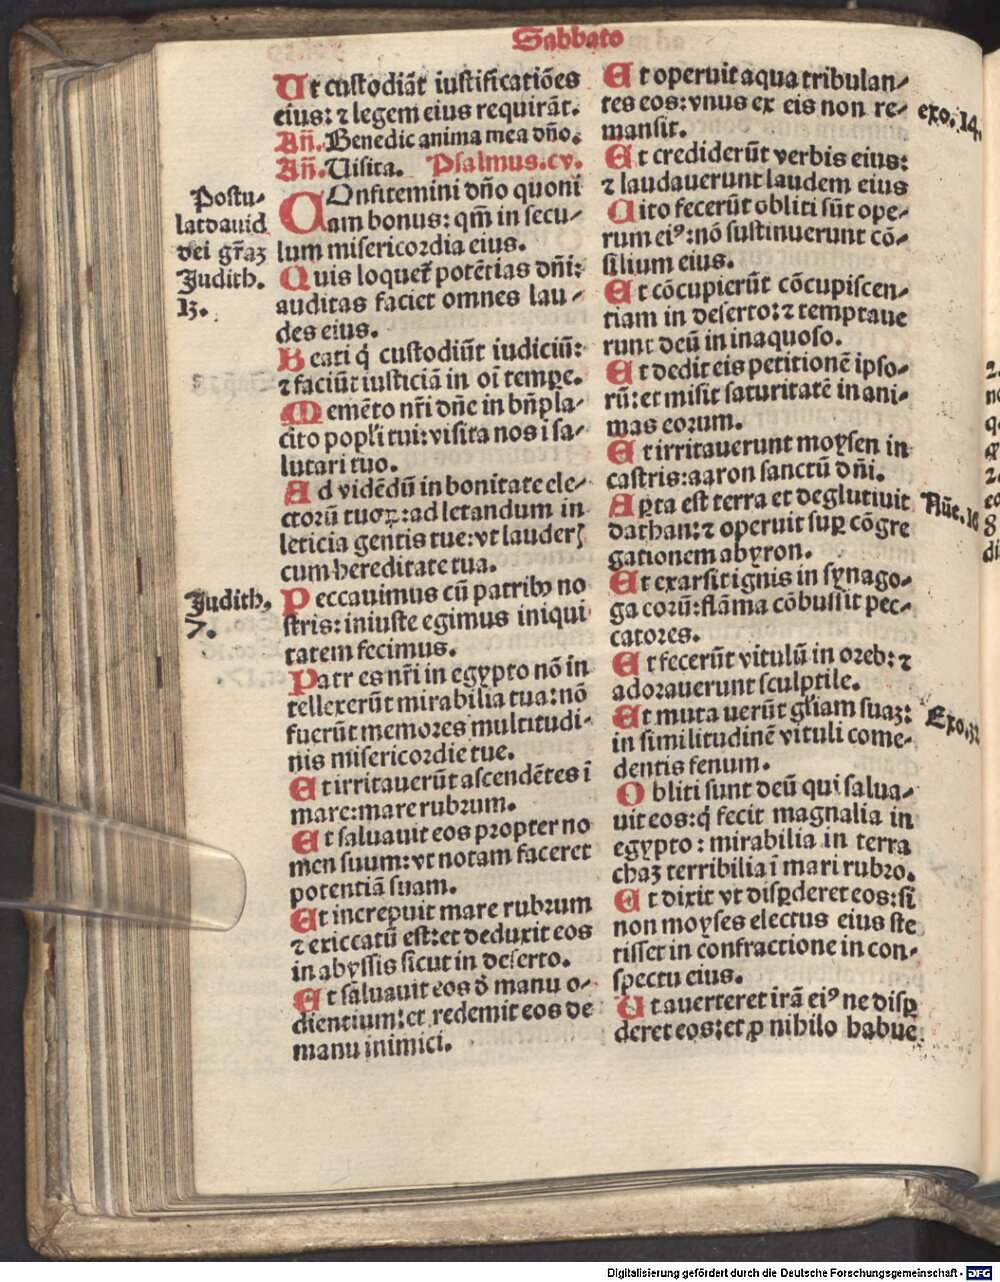 Sabbato
Ut custodiāt iustificatiōes
eius: ⁊ legem eius requirāt.
Añ. Benedic anima mea dño.
Añ. Uisita. Psalmus.cv.
COnfitemini dño quoni
am bonus: qm̄ in secu-
lum misericordia eius.
Quis loquet᷑ potētias dñi:
auditas faciet omnes lau-
des eius.
Beati q̇ custodiūt iudiciū:
⁊ faciūt iusticiā in oī tempe.
Memēto nr̄i dñe in bn̄pla-
cito popľi tui: visita nos ī sa-
lutari tuo.
Ad vidēdū in bonitate ele-
ctorū tuoꝝ: ad letandum in
leticia gentis tue: vt lauderꝭ
cum hereditate tua.
Peccauimus cū patribꝫ no
stris: iniuste egimus iniqui
tatem fecimus.
Patres nr̄i in egypto nō in
tellexerūt mirabilia tua: nō
fuerūt memores multitudi-
nis misericordie tue.
Et irritauerūt ascendētes ī
mare: mare rubrum.
Et saluauit eos propter no
men suum: vt notam faceret
potentiā suam.
Et increpuit mare rubrum
⁊ exiccatū est: et deduxit eos
in abyssis sicut in deserto.
Et saluauit eos đ manu o-
dientium: et redemit eos de
manu inimici.
Postu-
lat dauid
dei gr̄aꝫ
Judith.
13.
Judith.
7.
Et operuit aqua tribulan-
tes eos: vnus ex eis non re-
mansit.
Et crediderūt verbis eius:
⁊ laudauerunt laudem eius
Cito fecerūt obliti sūt ope-
rum eiꝰ: nō sustinuerunt cō-
silium eius.
Et cōcupierūt cōcupiscen-
tiam in deserto: ⁊ temptaue
runt deū in inaquoso.
Et dedit eis petitionē ipso-
rū: et misit saturitatē in ani-
mas eorum.
Et irritauerunt moysen in
castris: aaron sanctū dñi.
Aꝑta est terra et deglutiuit
dathan: ⁊ operuit suꝑ cōgre
gationem abyron.
Et exarsit ignis in synago-
ga eorū: flāma cōbussit pec-
catores.
Et fecerūt vitulū in oreb: ⁊
adorauerunt sculptile.
Et mutauerūt gl̄iam suaꝫ:
in similitudinē vituli come-
dentis fenum.
Obliti sunt deū qui salua-
uit eos: q̇ fecit magnalia in
egypto: mirabilia in terra
chaꝫ terribilia ī mari rubro.
Et dixit vt disꝑderet eos: si
non moyses electus eius ste
tisset in confractione in con-
spectu eius.
Ut auerteret irā eiꝰ ne disꝑ
deret eos: et ꝓ nihilo habue
exo. 14.
Nūe. 16
Exo. 32
Digitalisierung gefördert durch die Deutsche Forschungsgemeinschaft - DFG